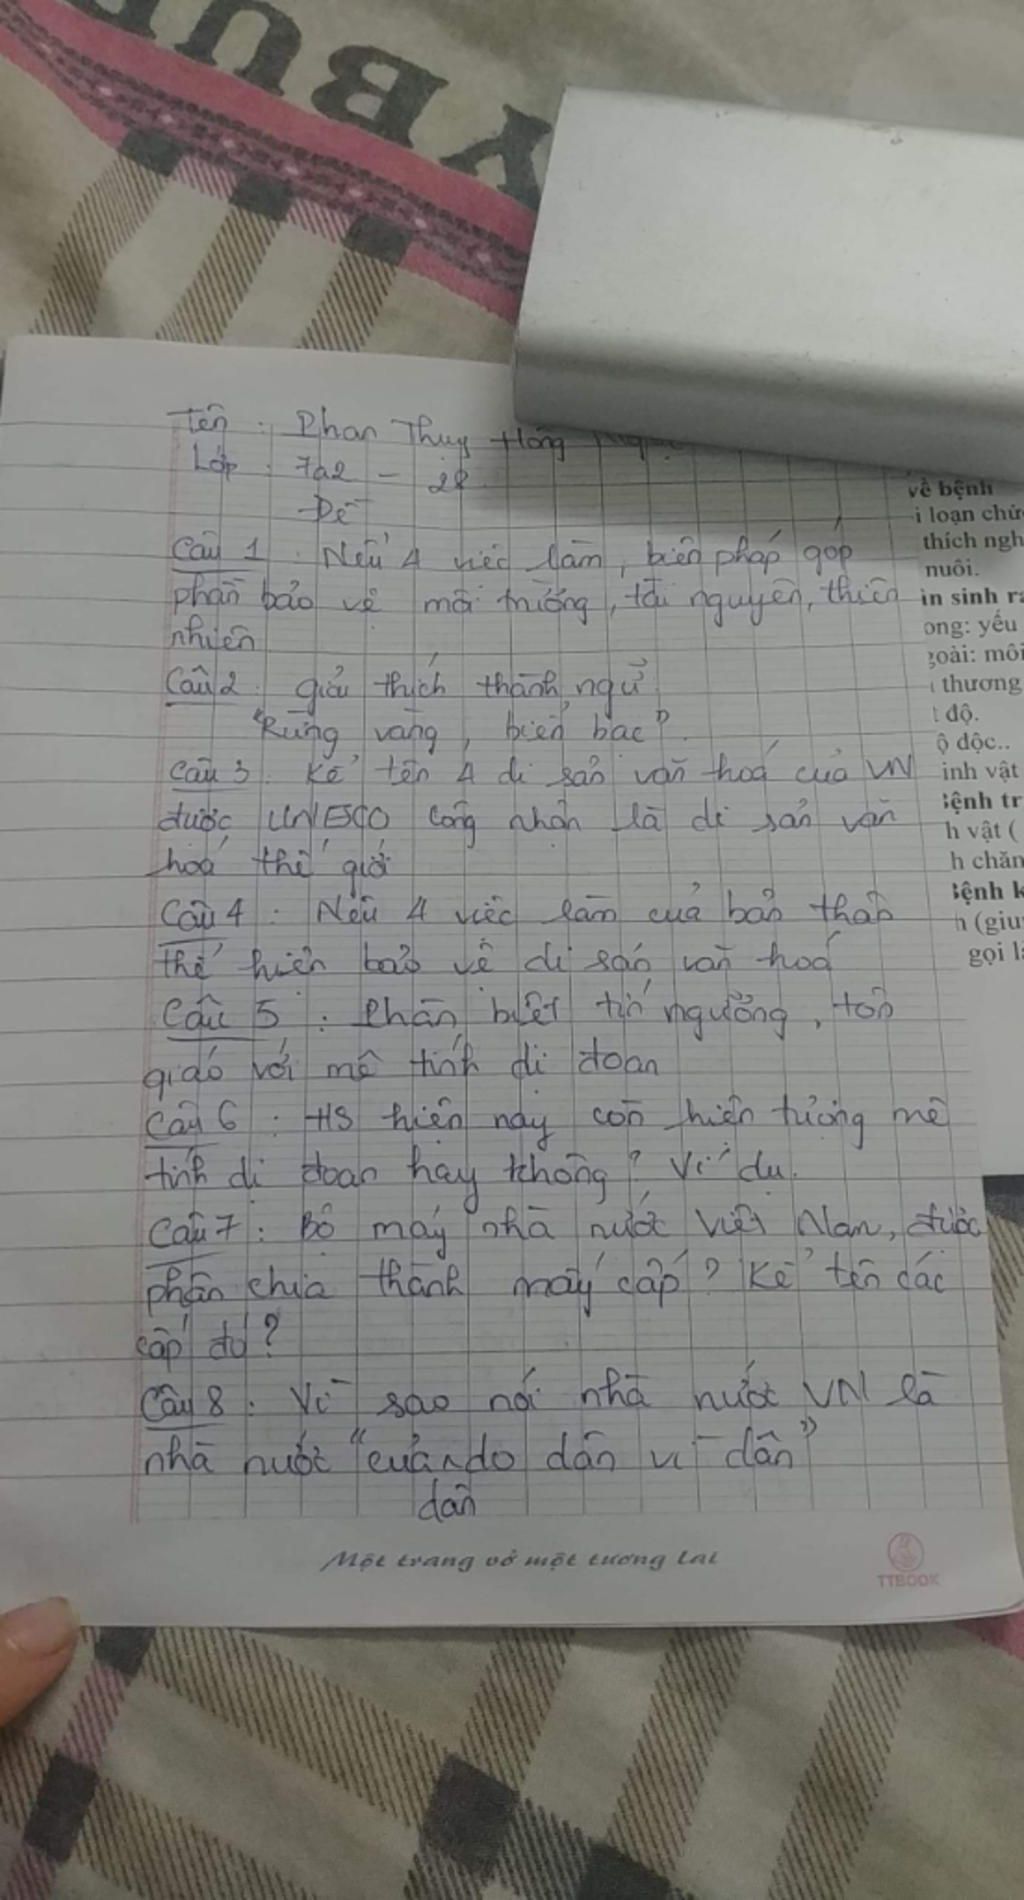 KBU
Tên : Phan Thuy Hồng
Lớp : 7a2 - 28
Đề
Câu 1 : Nêu 4 việc làm, biện pháp góp
phần bảo vệ môi trường, tài nguyên, thiên
nhiên
Câu 2 : giải thích thành ngữ
"Rừng vàng, biển bạc".
Câu 3 : Kể tên 4 di sản văn hoá của VN
được UNESCO công nhận là di sản văn
hoá thế giới
Câu 4 : Nêu 4 việc làm của bản thân
thể hiện bảo vệ di sản văn hoá
Câu 5 : Phân biệt tín ngưỡng, tôn
giáo với mê tính dị đoan
Câu 6 : HS hiện nay còn hiện tượng mê
tính dị đoan hay không? Ví dụ.
Câu 7 : Bộ máy nhà nước Việt Nam, được
phân chia thành mấy cấp? Kể tên các
cấp đó?
Câu 8 : Vì sao nói nhà nước VN là
nhà nước "của ^ do dân vì dân"
dân
Một trang vở một tương lai
TTBOOK
về bệnh
i loạn chứ
thích ngh
nuôi.
in sinh ra
ong: yếu
goài: môi
thương
t độ.
ộ độc..
inh vật
bệnh tr
h vật (
h chăn
bệnh k
n (giu
gọi là